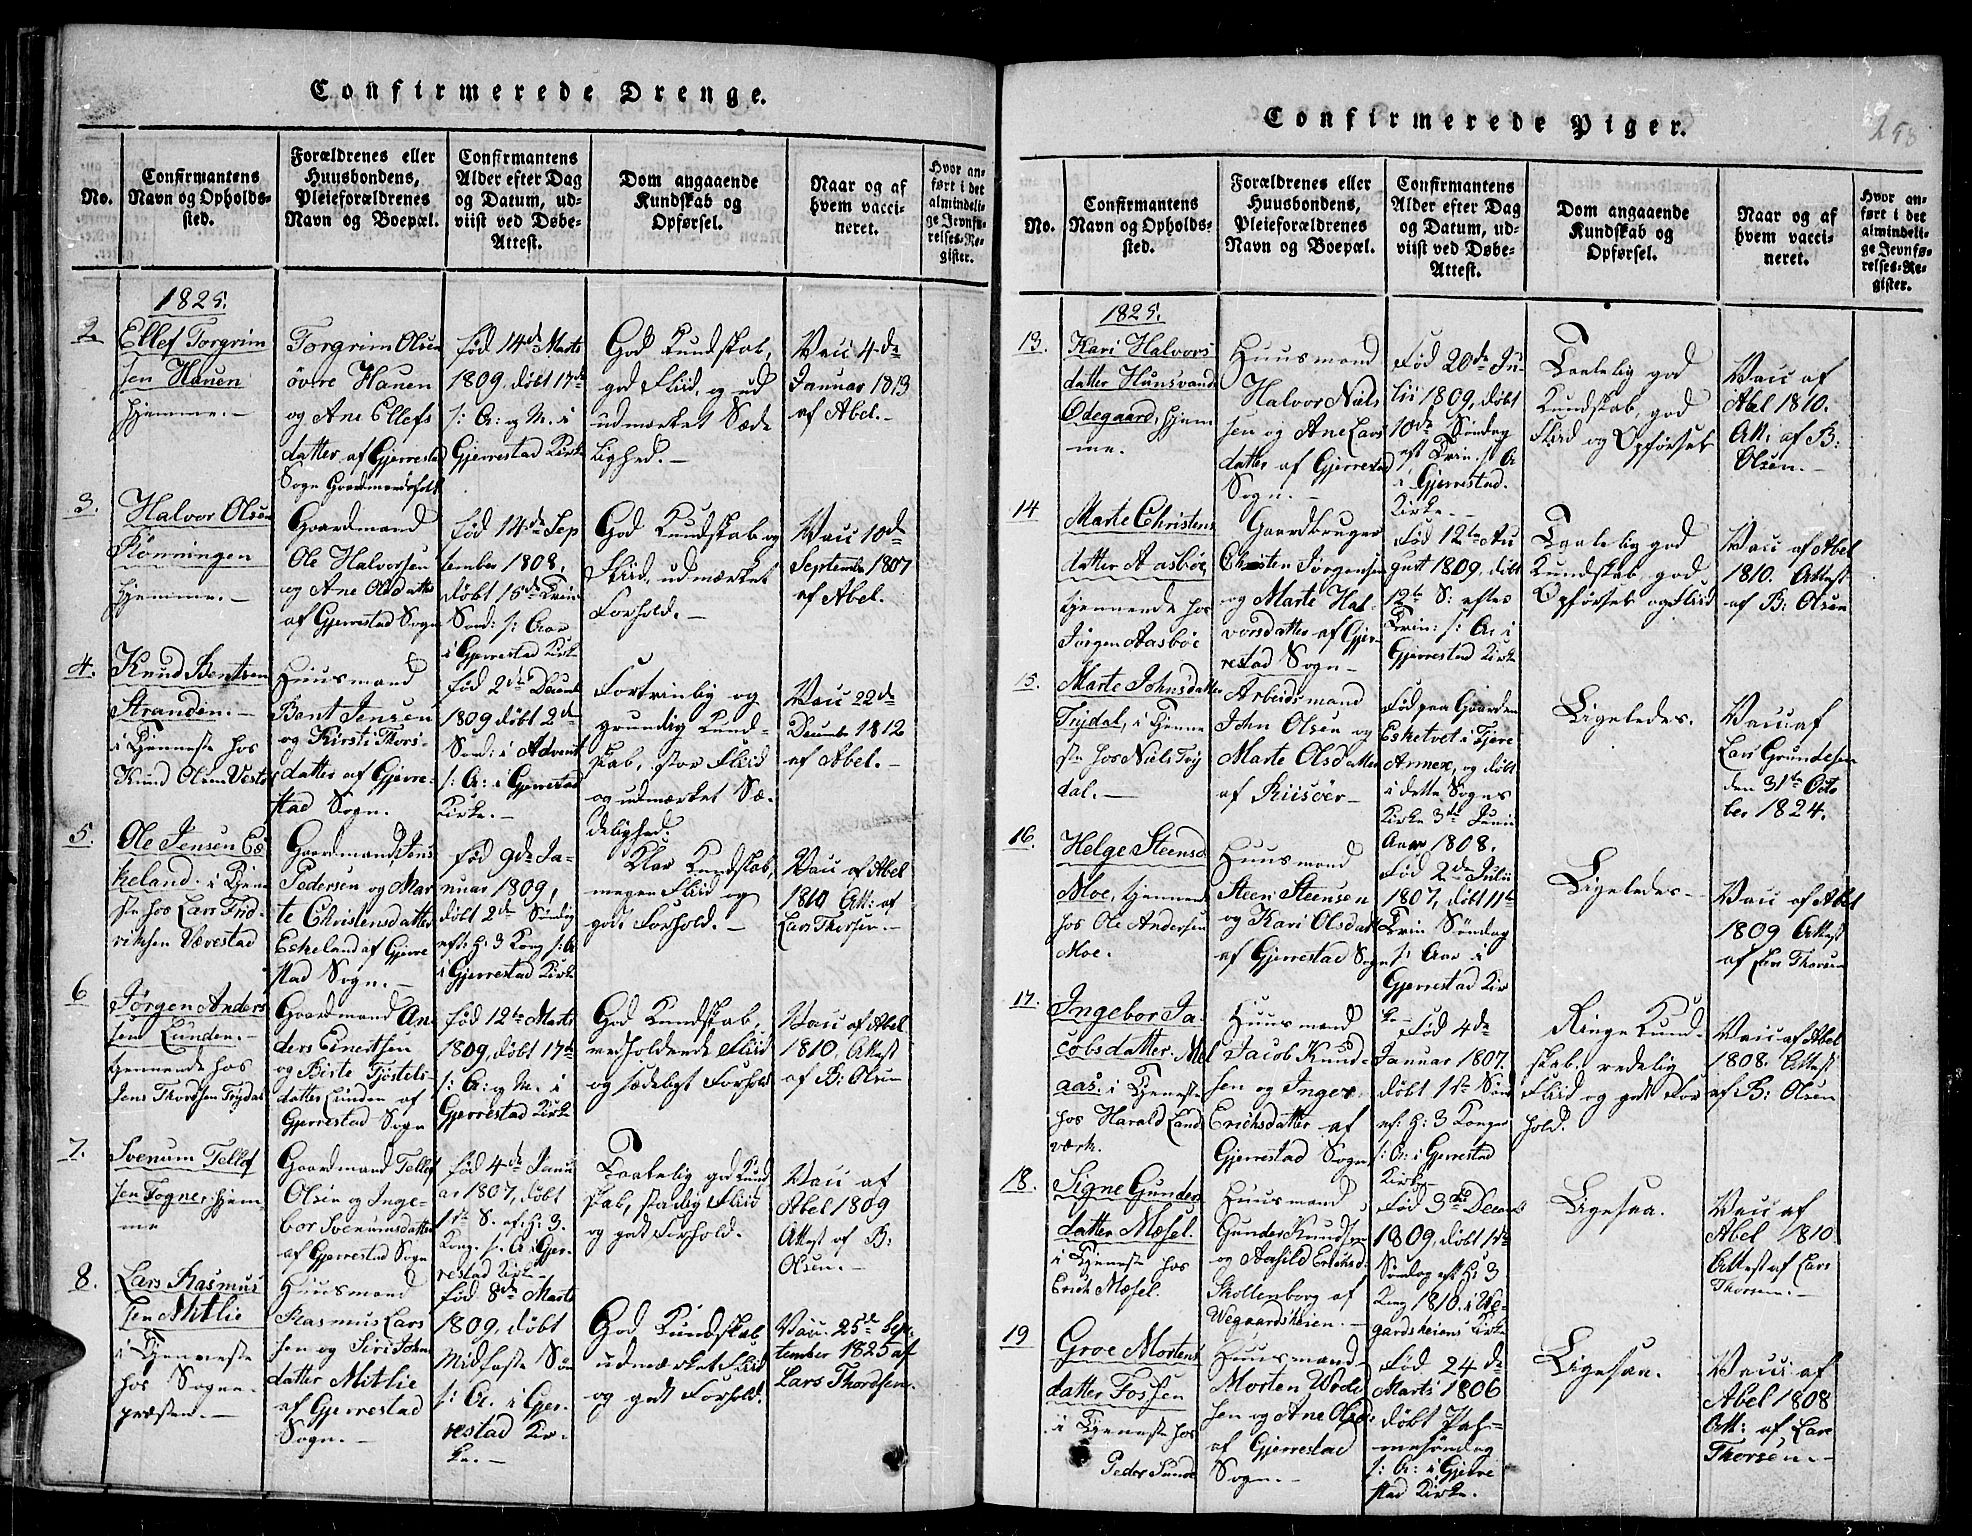 Confirmerede Drenge.
No.
Confirmantens
Navn og Opholds-
sted.
Forældrenes eller
Huusbondens,
Pleieforældrenes
Navn og Boepæl.
Confirmantens
Alder efter Dag
og Datum, ud-
viist ved Døbe-
Attest.
Dom angaaende
Kundskab og
Opførsel.
Naar og af
hvem vacci-
neret.
Hvor an-
ført i det
almindeli-
ge Jevnfø-
relses-Re-
gister.
1825.
2.
Ellef Torgrim
sen Hauen
hjemme. —
Torgrim Olsen
övre Hauen
og Ane Ellefs
datter af Gjerrestad
Sogn Gaardmandsfolk
fød 14de Marts
1809, døbt 17de
s: A: og M. i
Gjerrestad Kirke
God Kundskab,
god Fliid, og ud
udmærket Sæde
lighed. —
Vacc 4de
Januar 1813
af Abel. —
3.
Halvor Olsen
Rønningen
hjemme. —
Gaardmand
Ole Halvorsen
og Ane Olsdatter
af Gjerrestad Sogn
fød 14de Sep
tember 1808,
døbt 15de Trin
Sønd: s: Aar
i Gjerrestad Kirke
God Kundskab og
Fliid, udmærket
Forhold. —
Vacc 10de
Septembr 1807
af Abel.
4.
Knud Bentsen
Stranden. —
i Tjeneste hos
Knud Olsen Vestøl
Huusmand
Bent Jensen
og Kirsti Thors-
datter af Gjerre-
stad Sogn.
fød 2de Decemb
1809 døbt 2de
Sønd: i Advent
s: A: i Gjerrestad
Kirke. —
Fortrinlig og
grundig Kund-
skab, stor Fliid
og udmærket Sæ-
delighed.
Vacc 22de
Decembr 1812
af Abel. —
5.
Ole Jensen Es
keland. i Tjene
ste hos Lars Frid-
riksen Værestad
Gaardmand Jens
Pedersen og Mar
te Christensdatter
Eskeland af Gjerre
stad Sogn. —
fød 9de Ja-
nuar 1809,
døbt 2de Søndag
eft: H: 3 Kong s: A
i Gjerrestad Kirke
Klar Kundskab,
megen Fliid og
godt Forhold. —
Vacc af Abel
1810 Att: af
Lars Thorsen. —
6
Jørgen Anders
sen Lunden. —
tjenende hos
Jens Thordsen Trydal
Gaardmand An
ders Einertsen
og Birte Tjöstels-
datter Lunden af
Gjerrestad Sogn
fød 12te Marts
1809, døbt 17de
s: A: og M. i
Gjerrestad Kirke
God Kundskab,
vedholdende Fliid
og sædeligt Forhold
Vacc af Abel
1810. Attest
af B: Olsen
7.
Svenum Tellef
sen Fogne, hjem-
me
Gaardmand Tellef
Olsen og Inge-
bor Svenumsdatter
af Gjerrestad Sogn
fød 4de Janu
ar 1807, døbt
1ste S. ef: H: 3.
Kong. s: A i Gjer-
restad Kirke —
Taalelig god Kund
skab, stadig Fliid
og godt Forhold.
Vacc af
Abel 1809
Attest af B:
Olsen. —
8.
Lars Rasmus
sen Mitlie
i Tjenneste
hos Sogne-
præsten. —
Huusmand
Rasmus Lars
sen og Siri Johns
datter Mitlie
af Gjerrestad
Sogn. —
fød 8de Marts
1809, døbt
Midfaste Søn
s: A. i Gjer-
restad Kir-
ke. —
God Kundskab
udmærket Fliid
og godt Forhold.
Vacc. 25de Sep-
tember 1825 af
Lars Thordsen.
Confirmerede Piger.
258
No.
Confirmantens
Navn og Opholds-
sted.
Forældrenes eller
Huusbondens,
Pleieforældrenes
Navn og Boepæl.
Confirmantens
Alder efter Dag
og Datum, ud-
viist ved Døbe-
Attest.
Dom angaaende
Kundskab og
Opførsel.
Naar og af
hvem vacci-
neret.
Hvor an-
ført i det
almindeli-
ge Jevnfø-
relses-Re-
gister.
1825.
13.
Kari Halvors
datter Hunsvand
Ødegaard, hjem
me.
Huusmand
Halvor Niels
sen og Ane Lars
datter af Gjerrestad
Sogn. —
Fød 20de Ju-
lii 1809, døbt
10de Søndag
eft Trin. s: A
i Gjerrestad.
Kirke. —
Taalelig god
Kundskab, god
Fliid og Opførsel
Vacc af
Abel 1810.
Att: af B:
Olsen. —
14
Marte Christens
datter Aasböe,
tjennende hos
Jørgen Aasböe
Gaardbruger
Christen Jörgensen
og Marte Hal-
vorsdatter af Gjer-
restad Sogn —
Fød 12te Au
gust 1809, døbt
12te S: efter
Trin: s: A: i
Gjerrestad Kirke
Taalelig god
Kundskab, god
Opførsel og Fliid
Vacc af Abel
1810. Attest
af B: Olsen
15.
Marte Johnsdatter
Trydal, i Tjenne
ste hos Niels Try
dal. —
Arbeidsmand
John Olsen og
Marte Olsdatter
af Riisöer —
Fød paa Gaarden
Eskelvet i Tjere
Annex, og døbt
i dette Sogns
Kirke 3de Junii
Aar 1808.
Ligeledes.
Vacc af
Lars Grundesen
den 31te Octo
ber 1824.
16.
Helge Steensd
Moe, tjenende
hos Ole Andersen
Moe.
Huusmand
Steen Steensen
og Kari Olsdatt
af Gjerrestad Sogn
Fød 2de Julii
1807, døbt 11te
Trin Søndag
s: Aar i
Gjerrestad Kir
ke —
Ligeledes —
Vacc af Abel
1809 Attest
af Lars Thorsen
17.
Ingebor Ja-
cobsdatter. Mel
aas. i Tjeneste
hos Harald Land
værk.
Huusmand
Jacob Knud-
sen og Inger
Erichsdatter af
Gjerrestad Sogn
Fød 4de
Januar 1807.
døbt 1ste Søn
ef: H: 3 Konger
s: A: i Gjerrestad
Kirke
Ringe Kund-
skab. redelig
Fliid og godt For
hold.
Vacc af Abel
1808. Attest
af B: Olsen
18.
Signe Gunders
datter Mæsel.
i Tjeneste hos
Erich Mæsel.
Huusmand
Gunder Knudsen
og Aashild Erichsd.
Skollenborg af
Wegaardsheien. —
Fød 3de Decemb
1809, døbt 1ste
Søndag eft H: 3
Kong 1810. i We-
gardsheiens Kirke
Ligesaa.
Vacc af
Abel 1810
Attest af Lars
Thorsen. —
19
Groe Mortens
datter Fossen
i Tjeneste hos
Peder Sunde
Huusmand
Morten Wrole
sen og Ane Olsd:
af Gjerrestad
Sogn. —
Fød 24de
Marts 1806
døbt Pal-
mesøndag
s: A: i Gjerre
stad Kirke.
Ligesaa.
Vacc: af
Abel 1808
Att: af Lars
Thorsen. —